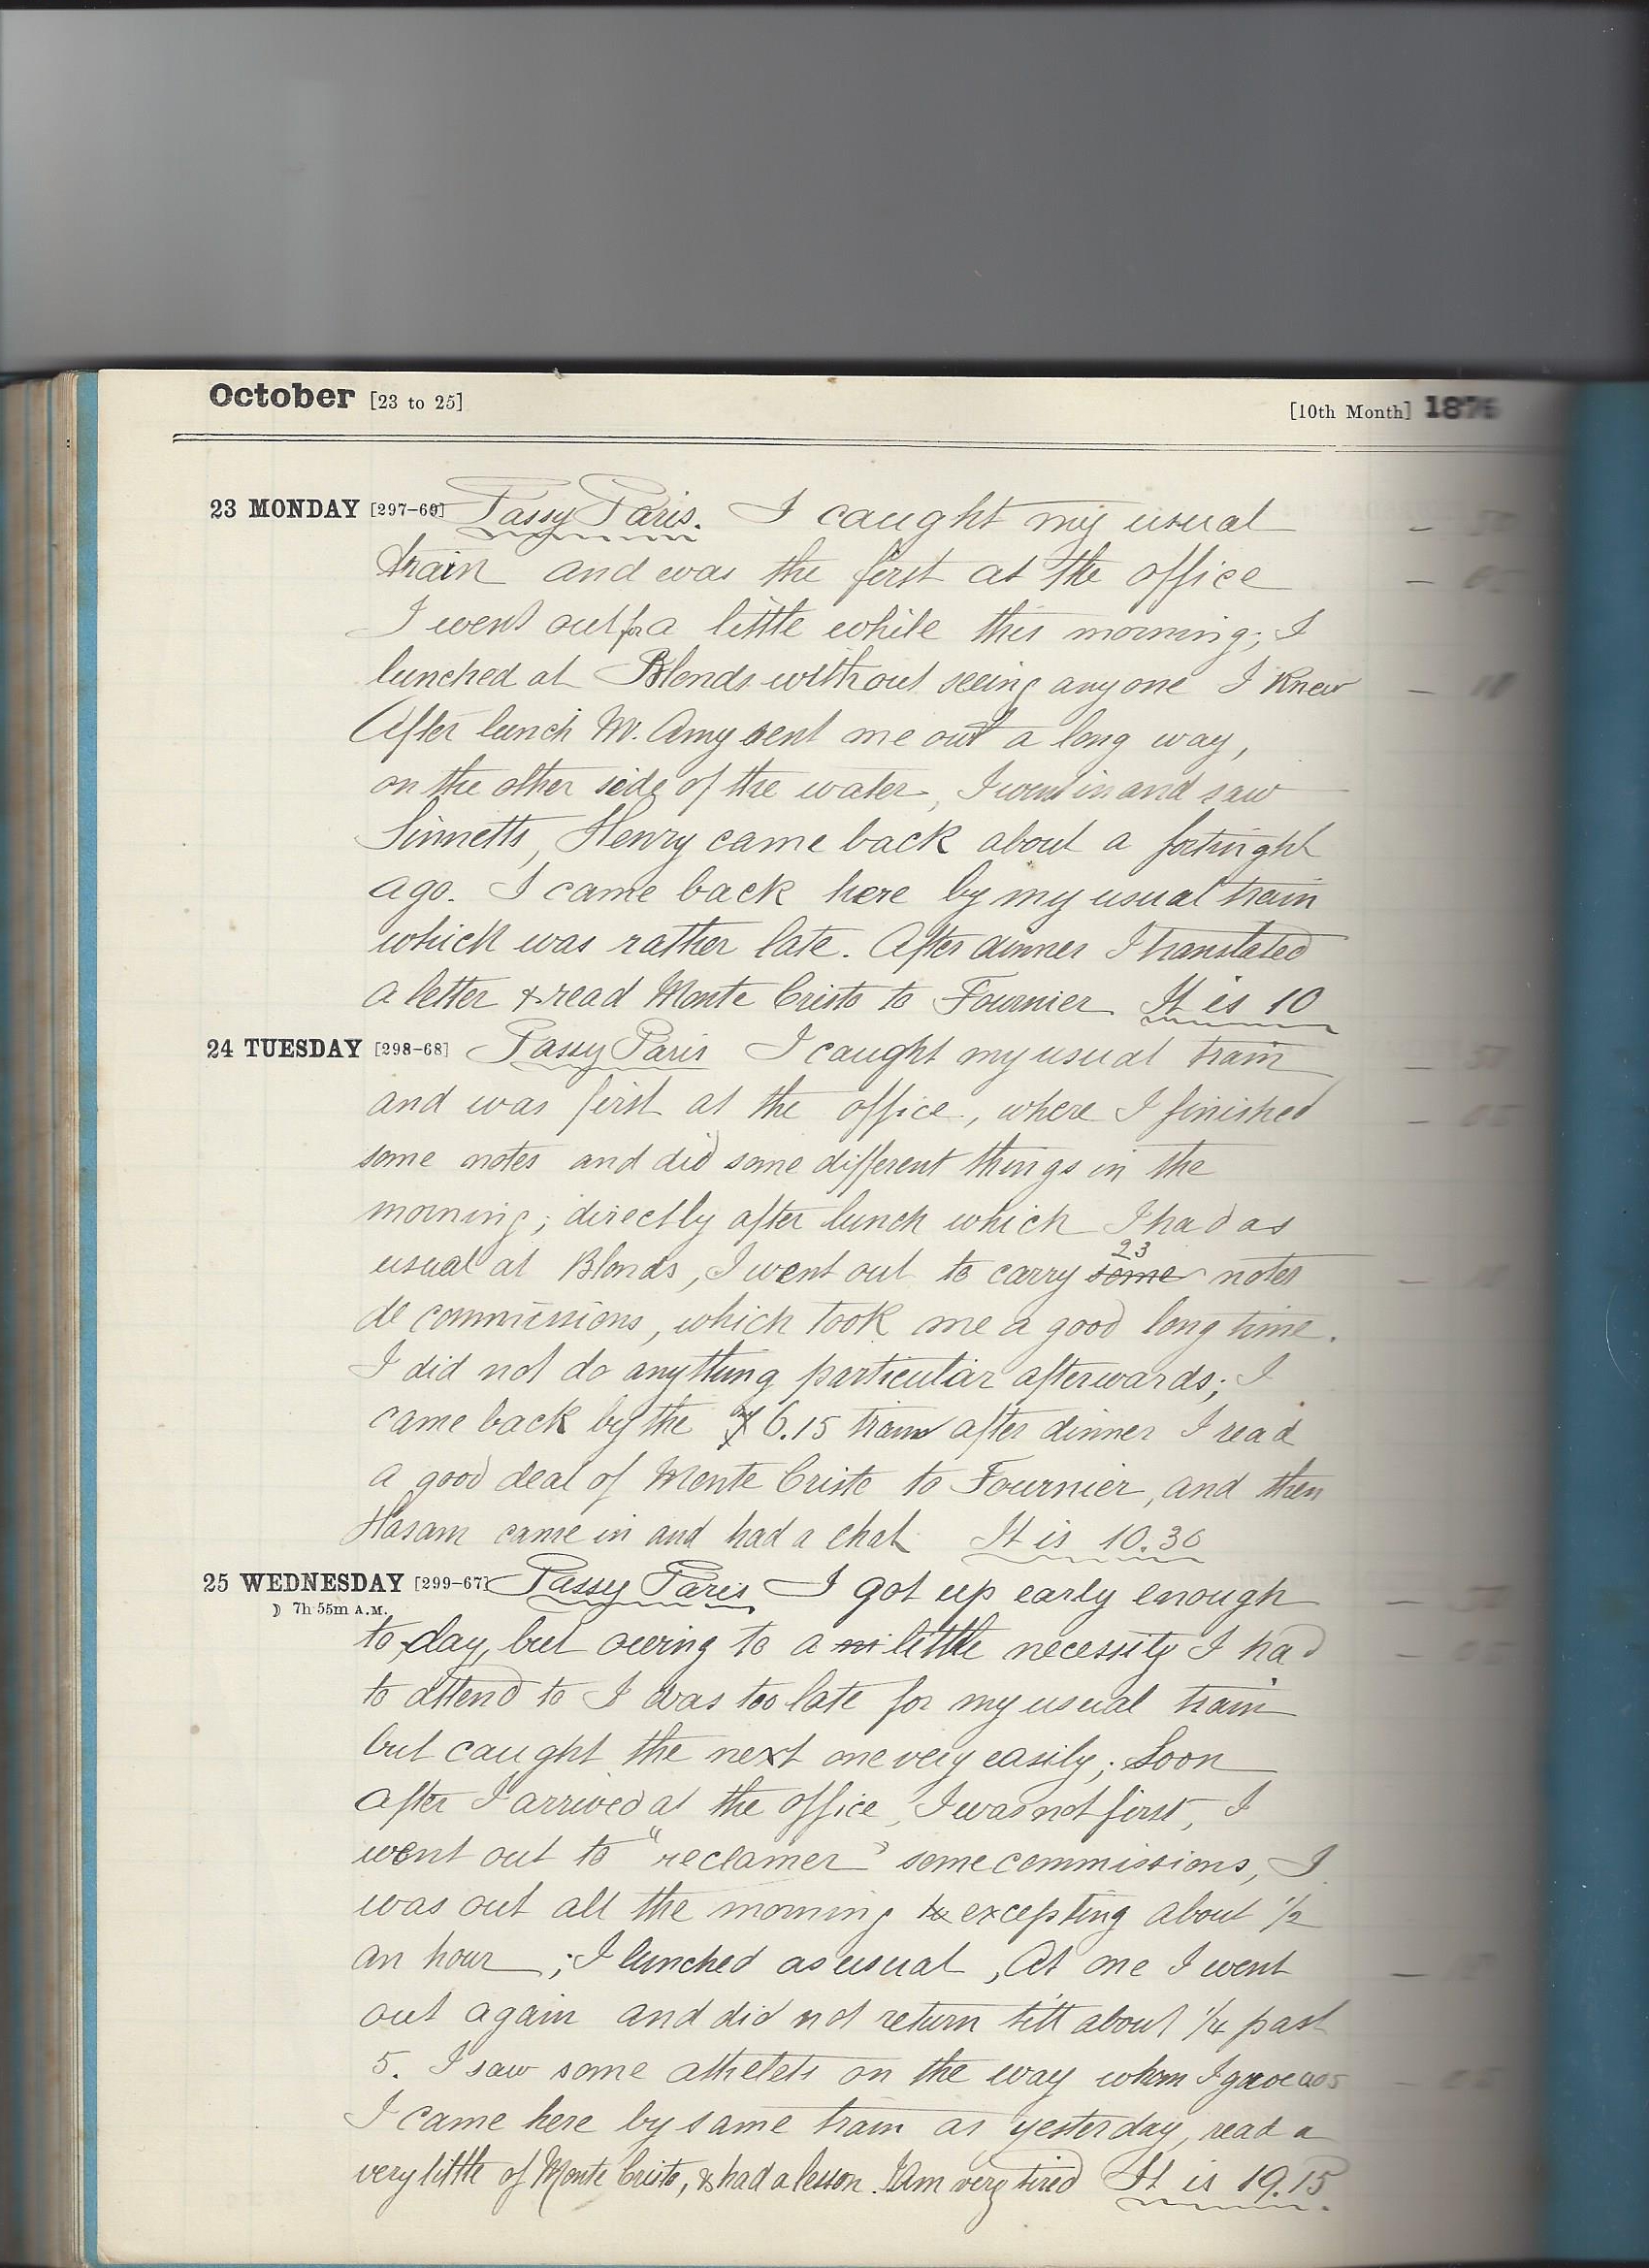 October [23 to 25] [10th Month] 1876
23 MONDAY [297-69] Passy Paris. I caught my usual
train and was the first at the office
I went out for a little while this morning; I
lunched at Blonds without seeing anyone I knew
After lunch Mr. Amy sent me out a long way,
on the other side of the water, I went in and saw
Sinnetts, Henry came back about a fortinght
ago. I came back here by my usual train
which was rather late. After dinner I translated
a letter & read Monte Cristo to Fournier. It is 10
24 TUESDAY [298-68] Passy Paris I caught my usual train
and was first at the office, where I finished
some notes and did some different things in the
morning; directly after lunch which I had as
usual at Blonds, I went out to carry some 23 notes
de commissions, which took me a good long time.
I did not do anything particular afterwards; I
came back by the 6.15 train after dinner I read
a good deal of Monte Cristo to Fournier, and then
Hasam came in and had a chat It is 10.30
25 WEDNESDAY [299-67] Passy Paris I got up early enough
☽ 7h 55m A.M.
to day, but owing to a little necessity I had
to attend to I was too late for my usual train
but caught the next one very easily; Soon
after I arrived at the office, I was not first, I
went out to "reclamer" some commissions, I
was out all the morning excepting about 1/2
an hour; I lunched as usual, At one I went
out again and did not return till about 1/4 past
5. I saw some athelets on the way whom I gave 005
I came here by same train as yesterday, read a
very little of Monte Cristo, & had a lesson. I am very tired It is 19.15.